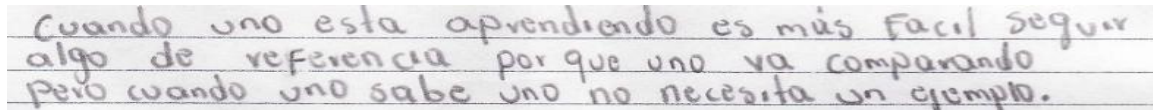 Cuando uno esta aprendiendo es más Facil seguir
algo de referencia por que uno va comparando
pero cuando uno sabe uno no necesita un ejemplo.